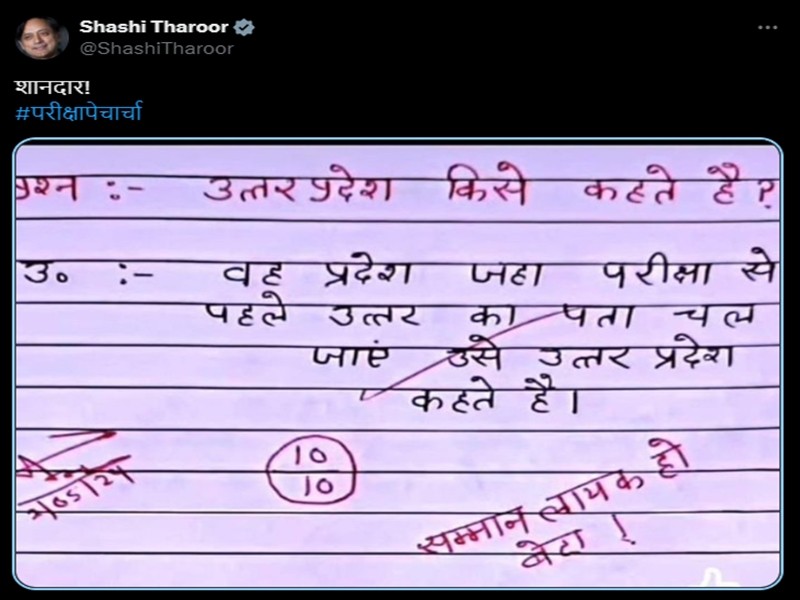 Shashi Tharoor
@ShashiTharoor
शानदार!
#परीक्षापेचार्चा
प्रश्न :- उत्तर प्रदेश किसे कहते है?
उ० :- वह प्रदेश जहा परीक्षा से
पहले उत्तर का पता चल
जाएं उसे उत्तर प्रदेश
कहते है।
10
10
सम्मान लायक हो
बेटा !